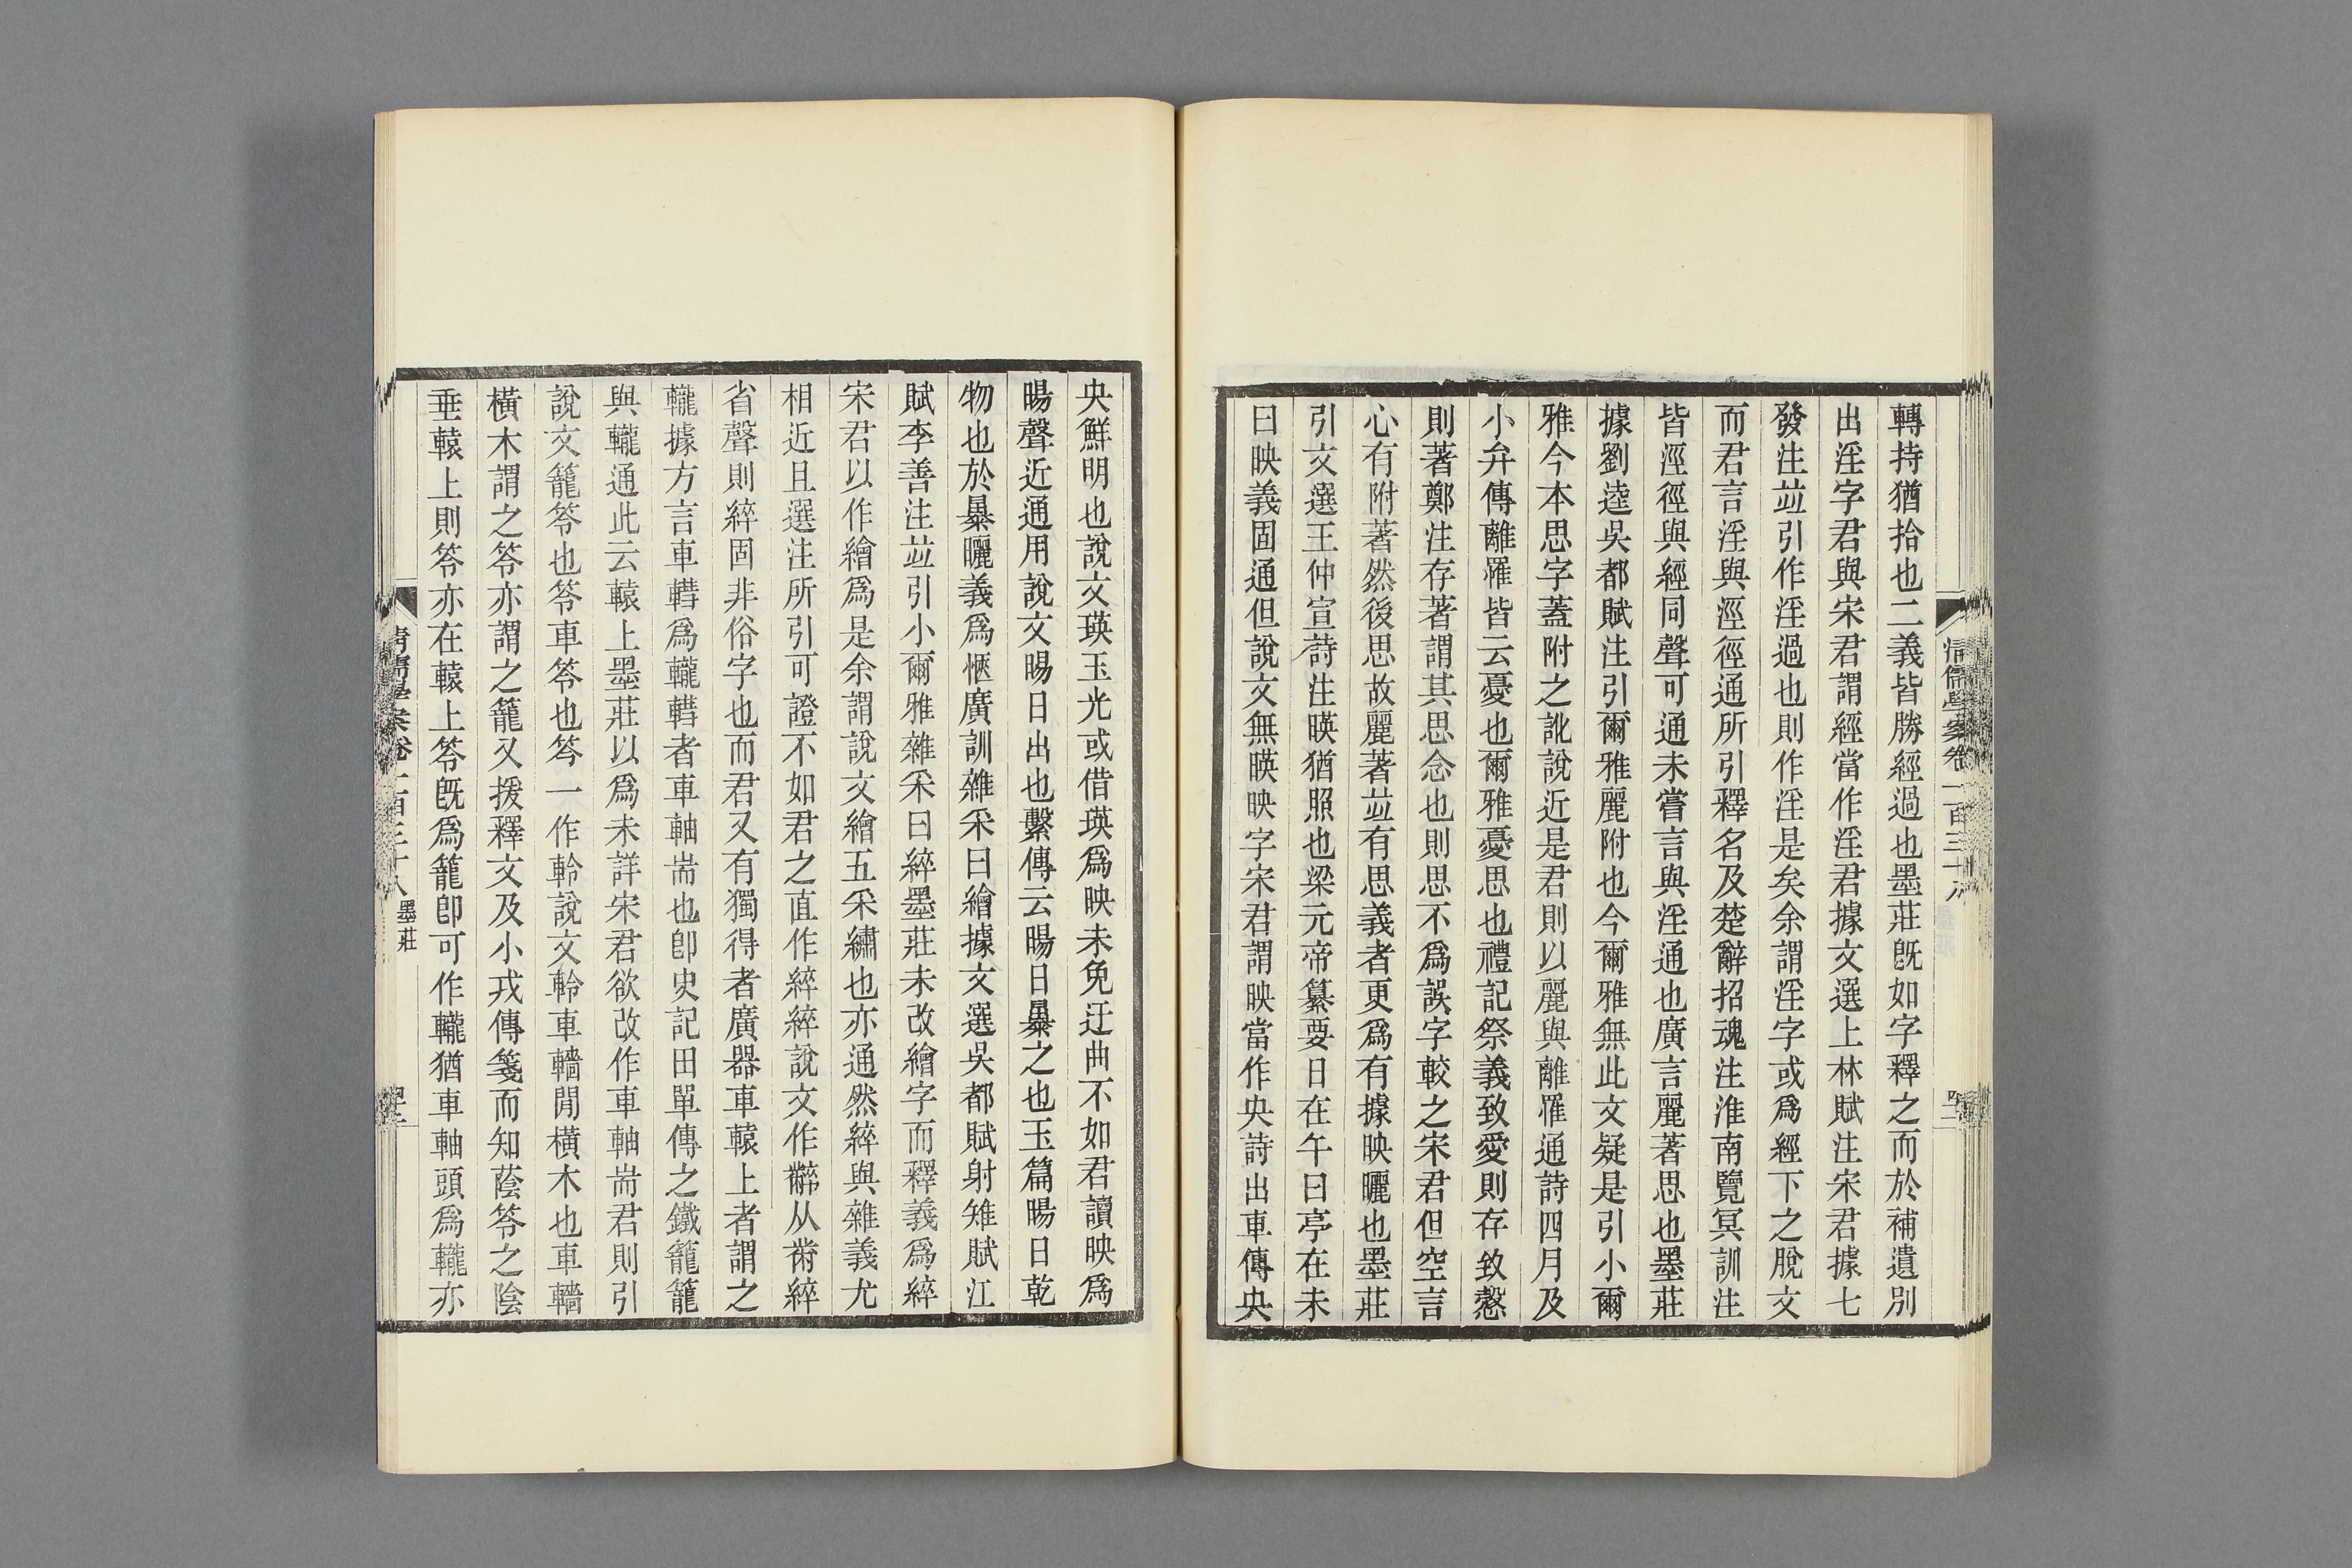 轉持猶拾也二義皆勝經過也墨莊旣如字釋之而於補遺別
出淫字君與宋君謂經當作淫君據文選上林賦注宋君據七
發注竝引作淫過也則作淫是矣余謂淫字或爲經下之脫文
而君言淫與涇徑通所引釋名及楚辭招魂注淮南覽冥訓注
皆涇徑與經同聲可通未嘗言與淫通也廣言麗著思也墨莊
據劉逵吳都賦注引爾雅麗附也今爾雅無此文疑是引小爾
雅今本思字蓋附之訛說近是君則以麗與離罹通詩四月及
小弁傳離罹皆云憂也爾雅憂思也禮記祭義致愛則存致慤
則著鄭注存著謂其思念也則思不爲誤字較之宋君但空言
心有附著然後思故麗著竝有思義者更爲有據映曬也墨莊
引文選王仲宣詩注暎猶照也梁元帝纂要日在午曰亭在未
曰映義固通但說文無暎映字宋君謂映當作央詩出車傳央
清儒學案卷一百三十八
央鮮明也說文瑛玉光或借瑛爲映未免迂曲不如君讀映爲
暘聲近通用說文暘日出也繫傳云暘日㬥之也玉篇暘日乾
物也於㬥曬義爲愜廣訓雜采曰繪據文選吳都賦射雉賦江
賦李善注竝引小爾雅雜采曰綷墨莊未改繪字而釋義爲綷
宋君以作繪爲是余謂說文繪五采繡也亦通然綷與雜義尤
相近且選注所引可證不如君之直作綷綷說文作䘹从黹綷
省聲則綷固非俗字也而君又有獨得者廣器車轅上者謂之
轣據方言車轊爲轣轊者車軸耑也卽史記田單傳之鐵籠籠
與轣通此云轅上墨莊以爲未詳宋君欲改作車軸耑君則引
說文籠笭也笭車笭也笭一作軨說文軨車轖閒橫木也車轖
橫木謂之笭亦謂之籠又援釋文及小戎傳箋而知蔭笭之陰
垂轅上則笭亦在轅上笭旣爲籠卽可作轣猶車軸頭爲轣亦
清儒學案卷一百三十八 墨莊